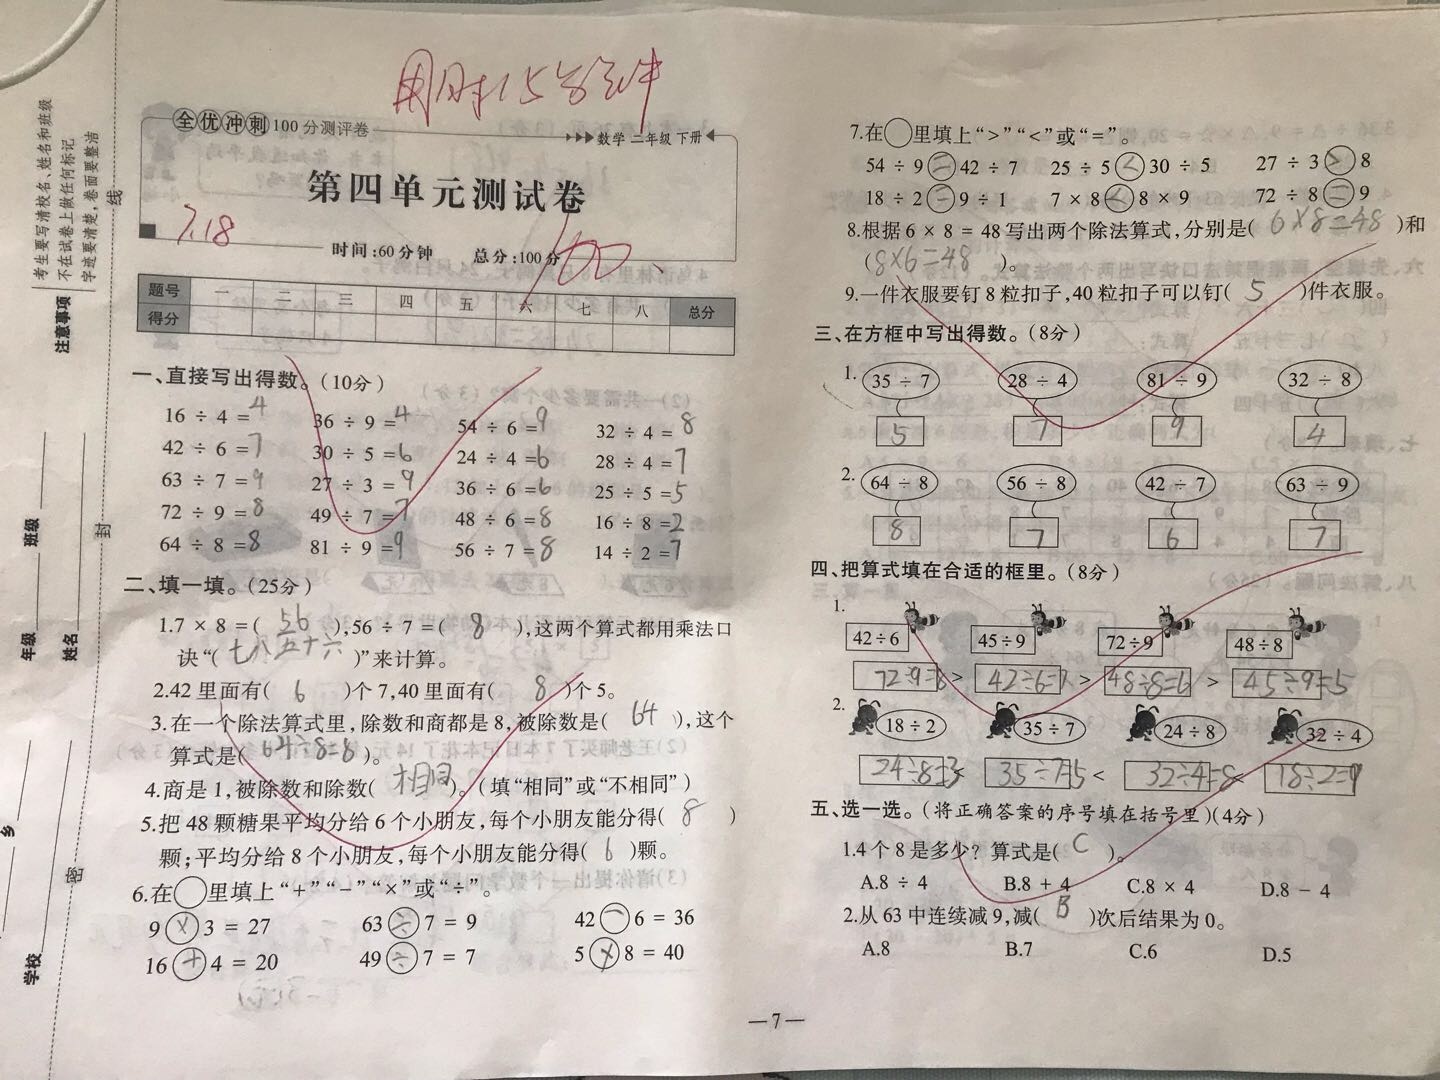 考生要写清校名、姓名和班级
不在试卷上做任何标记
字迹要清楚，卷面要整洁
注意事项
学校 乡 年级 班级 姓名
密 封 线
用时15分钟
全优冲刺100分测评卷
数学 二年级 下册
第四单元测试卷
7.18
时间:60分钟 总分:100分
100
题号 一 二 三 四 五 六 七 八 总分
得分
一、直接写出得数。(10分)
16 ÷ 4 = 4 36 ÷ 9 = 4 54 ÷ 6 = 9 32 ÷ 4 = 8
42 ÷ 6 = 7 30 ÷ 5 = 6 24 ÷ 4 = 6 28 ÷ 4 = 7
63 ÷ 7 = 9 27 ÷ 3 = 9 36 ÷ 6 = 6 25 ÷ 5 = 5
72 ÷ 9 = 8 49 ÷ 7 = 7 48 ÷ 6 = 8 16 ÷ 8 = 2
64 ÷ 8 = 8 81 ÷ 9 = 9 56 ÷ 7 = 8 14 ÷ 2 = 7
二、填一填。(25分)
1.7 × 8 = ( 56 ),56 ÷ 7 = ( 8 ),这两个算式都用乘法口
诀“( 七八五十六 )”来计算。
2.42 里面有( 6 )个 7,40 里面有( 8 )个 5。
3.在一个除法算式里,除数和商都是 8,被除数是( 64 ),这个
算式是( 64÷8=8 )。
4.商是 1,被除数和除数( 相同 )。(填“相同”或“不相同”)
5.把 48 颗糖果平均分给 6 个小朋友,每个小朋友能分得( 8 )
颗;平均分给 8 个小朋友,每个小朋友能分得( 6 )颗。
6.在○里填上“+”“−”“×”或“÷”。
9 × 3 = 27 63 ÷ 7 = 9 42 − 6 = 36
16 + 4 = 20 49 ÷ 7 = 7 5 × 8 = 40
7.在○里填上“>”“<”或“=”。
54 ÷ 9 = 42 ÷ 7 25 ÷ 5 < 30 ÷ 5 27 ÷ 3 > 8
18 ÷ 2 = 9 ÷ 1 7 × 8 < 8 × 9 72 ÷ 8 = 9
8.根据 6 × 8 = 48 写出两个除法算式,分别是( 6×8=48 )和
( 8×6=48 )。
9.一件衣服要钉 8 粒扣子,40 粒扣子可以钉( 5 )件衣服。
三、在方框中写出得数。(8分)
1. 35 ÷ 7 28 ÷ 4 81 ÷ 9 32 ÷ 8
5 7 9 4
2. 64 ÷ 8 56 ÷ 8 42 ÷ 7 63 ÷ 9
8 7 6 7
四、把算式填在合适的框里。(8分)
1. 42 ÷ 6 45 ÷ 9 72 ÷ 9 48 ÷ 8
72÷9=8 > 42÷6=7 > 48÷8=6 > 45÷9=5
2. 18 ÷ 2 35 ÷ 7 24 ÷ 8 32 ÷ 4
24÷8=3 < 35÷7=5 < 32÷4=8 < 18÷2=9
五、选一选。(将正确答案的序号填在括号里)(4分)
1.4 个 8 是多少? 算式是( C )。
A.8 ÷ 4 B.8 + 4 C.8 × 4 D.8 − 4
2.从 63 中连续减 9,减( B )次后结果为 0。
A.8 B.7 C.6 D.5
—7—